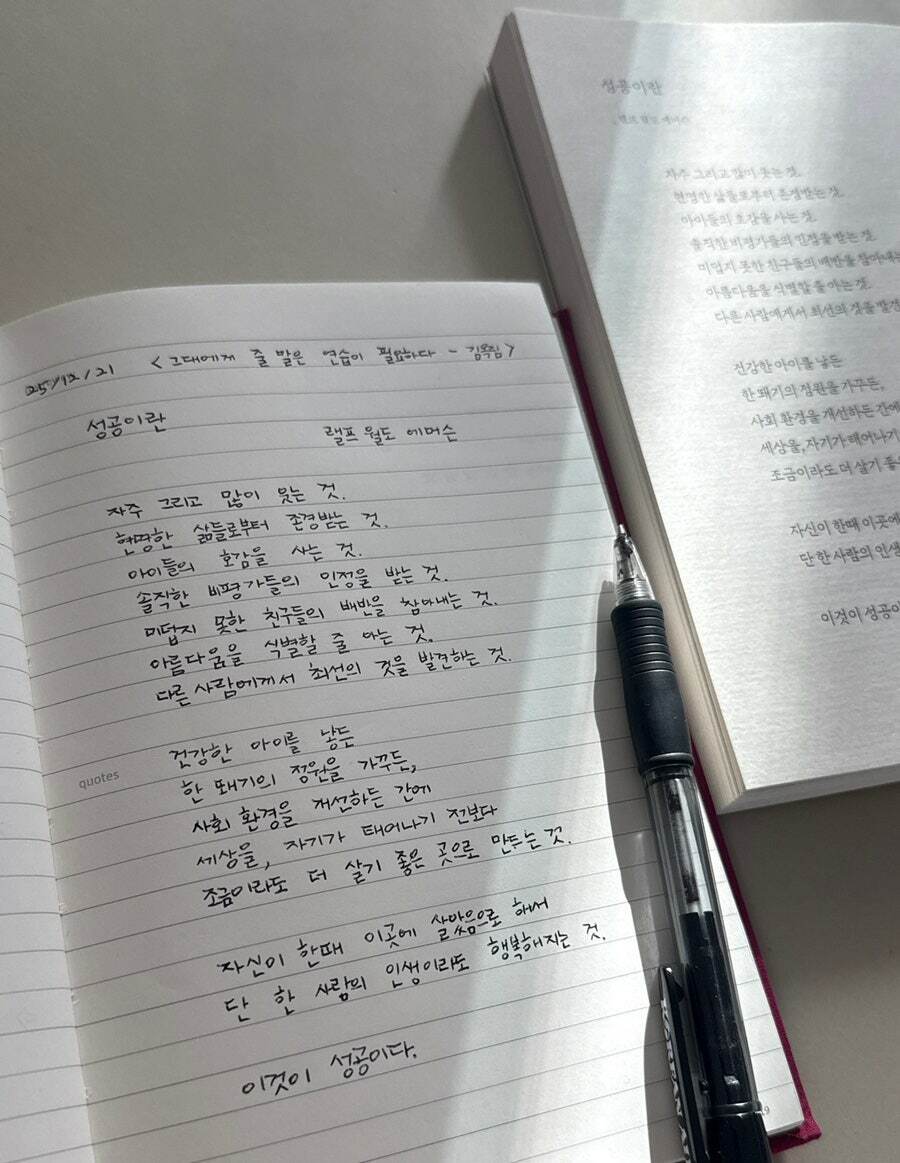 25/12/21 <그대에게 줄 말은 연습이 필요하다 - 김옥림>
성공이란
랠프 월도 에머슨
자주 그리고 많이 웃는 것.
현명한 삶들로부터 존경받는 것.
아이들의 호감을 사는 것.
솔직한 비평가들의 인정을 받는 것.
미덥지 못한 친구들의 배반을 참아내는 것.
아름다움을 식별할 줄 아는 것.
다른 사람에게서 최선의 것을 발견하는 것.
건강한 아이를 낳든
한 뙈기의 정원을 가꾸든,
사회 환경을 개선하든 간에
세상을, 자기가 태어나기 전보다
조금이라도 더 살기 좋은 곳으로 만드는 것.
자신이 한때 이곳에 살았음으로 해서
단 한 사람의 인생이라도 행복해지는 것.
이것이 성공이다.
quotes
성공이란
랠프 월도 에머슨
자주 그리고 많이 웃는 것.
현명한 삶들로부터 존경받는 것.
아이들의 호감을 사는 것.
솔직한 비평가들의 인정을 받는 것.
미덥지 못한 친구들의 배반을 참아내는
아름다움을 식별할 줄 아는 것.
다른 사람에게서 최선의 것을 발견
건강한 아이를 낳든
한 뙈기의 정원을 가꾸든,
사회 환경을 개선하든 간에
세상을, 자기가 태어나기
조금이라도 더 살기 좋
자신이 한때 이곳에
단 한 사람의 인생
이것이 성공이